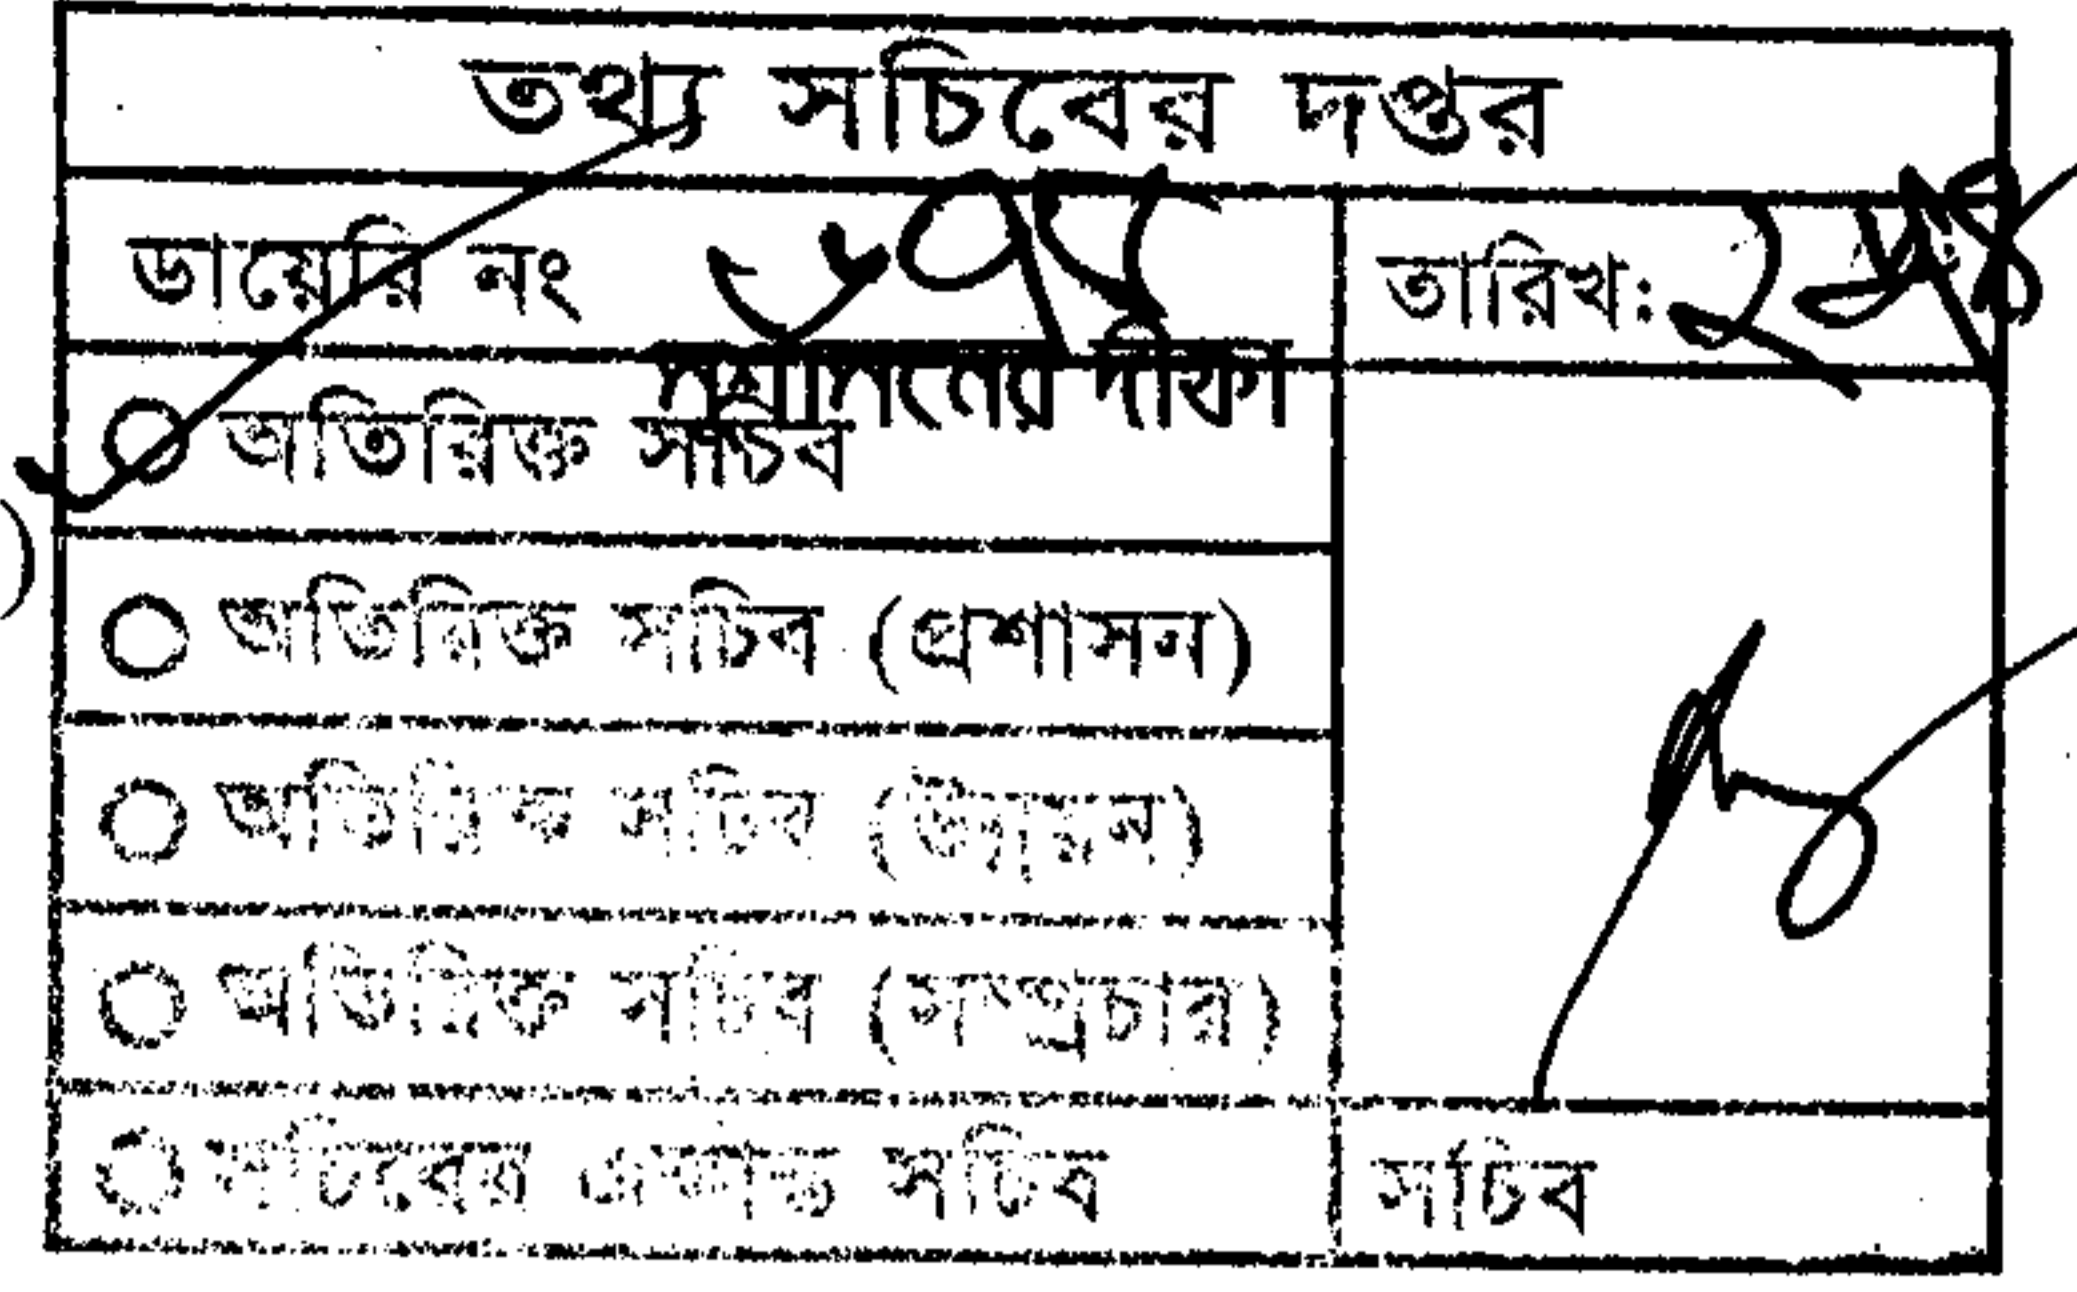 তথ্য সচিবের দপ্তর
ডায়েরি নং
তারিখঃ
অতিরিক্ত সচিব
অতিরিক্ত সচিব (প্রশাসন)
অতিরিক্ত সচিব (উন্নয়ন)
অতিরিক্ত সচিব (সম্প্রচার)
সচিবের একান্ত সচিব
সচিব